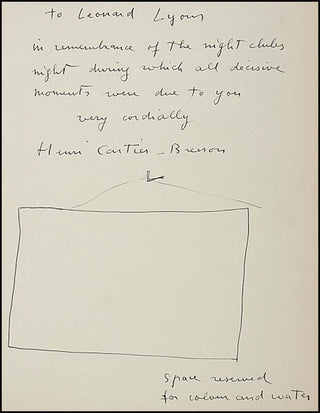 to Leonard Lyons
in remembrance of the night clubs
night during which all decisive
moments were due to you
very cordially
Henri Cartier-Bresson
Space reserved
for colour and water